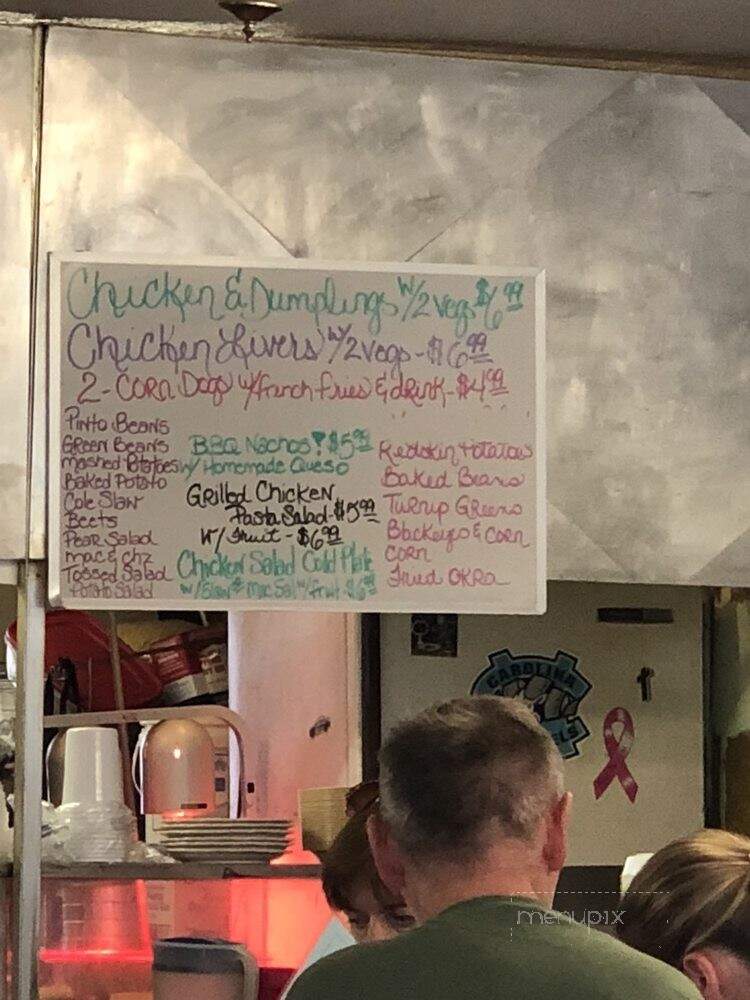 Chicken & Dumplings w/2 vegs $6.99
Chicken Livers w/2 vegs - $6.99
2- Corn Dogs w/french fries & drink - $4.99
Pinto Beans
Green Beans
Mashed Potatoes
Baked Potato
Cole Slaw
Beets
Pear Salad
mac & chz
Tossed Salad
Potato Salad
BBQ Nachos! $5.99
w/ Homemade Queso
Grilled Chicken
Pasta Salad - $5.99
w/ fruit - $6.99
Chicken Salad Cold Plate
w/Slaw Mac Sal w/fruit $6.99
Redskin Potatoes
Baked Beans
Turnip Greens
Blackeyes & Corn
Corn
Fried OKRa
CAROLINA
menupix